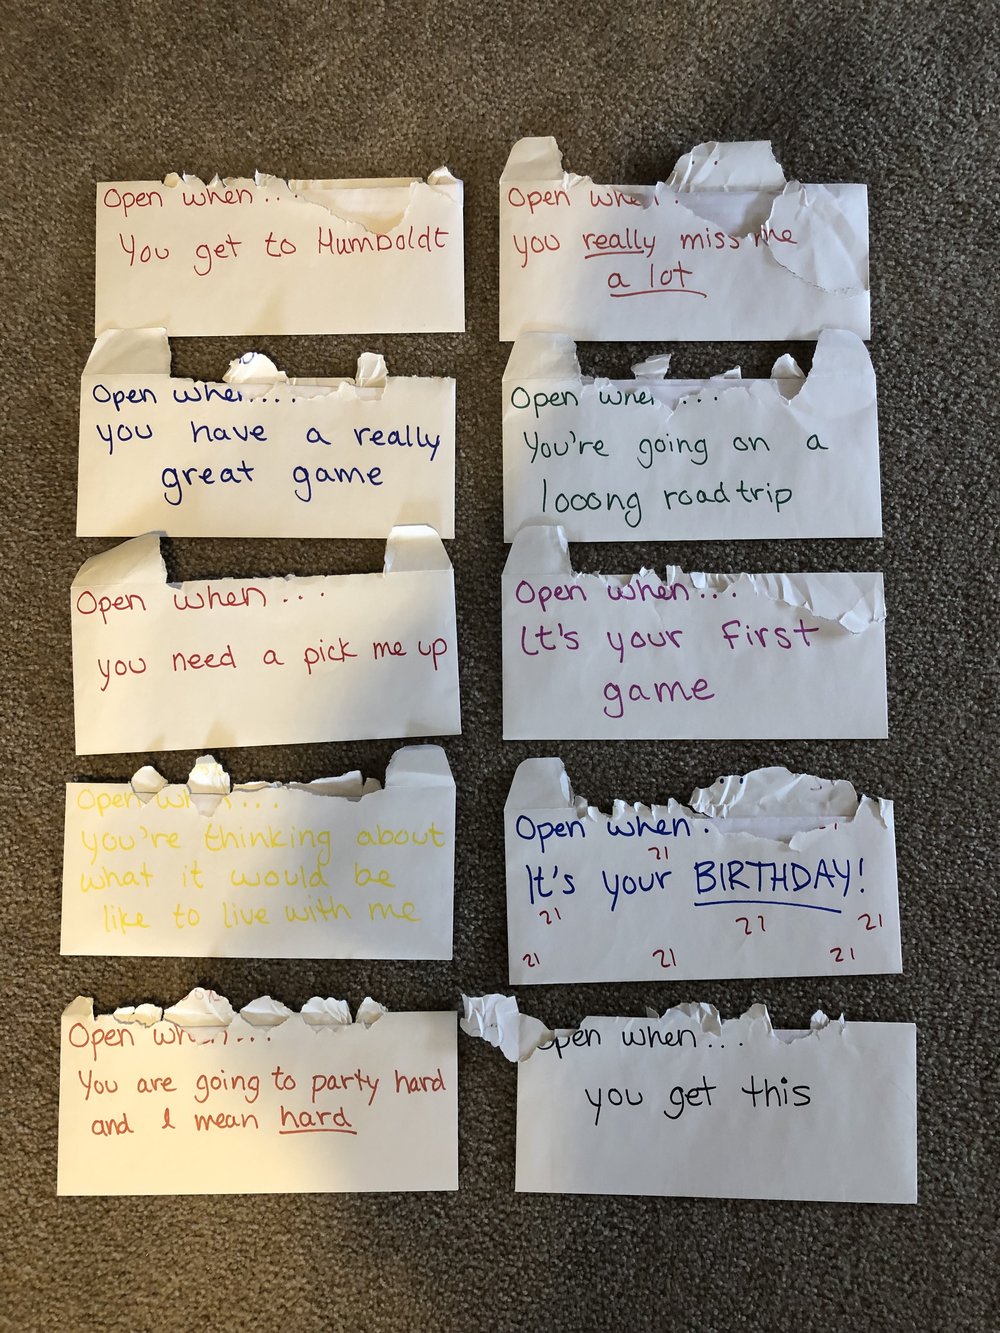 Open when...
You get to Humboldt
Open when.
you really miss me
a lot
Open when....
you have a really
great game
Open when...
You're going on a
looong road trip
Open when...
you need a pick me up
Open when...
It's your first
game
Open when...
you're thinking about
what it would be
like to live with me
Open when.
21
It's your BIRTHDAY!
21
21
21
21
21
21
Open when...
You are going to party hard
and I mean hard
Open when...
you get this